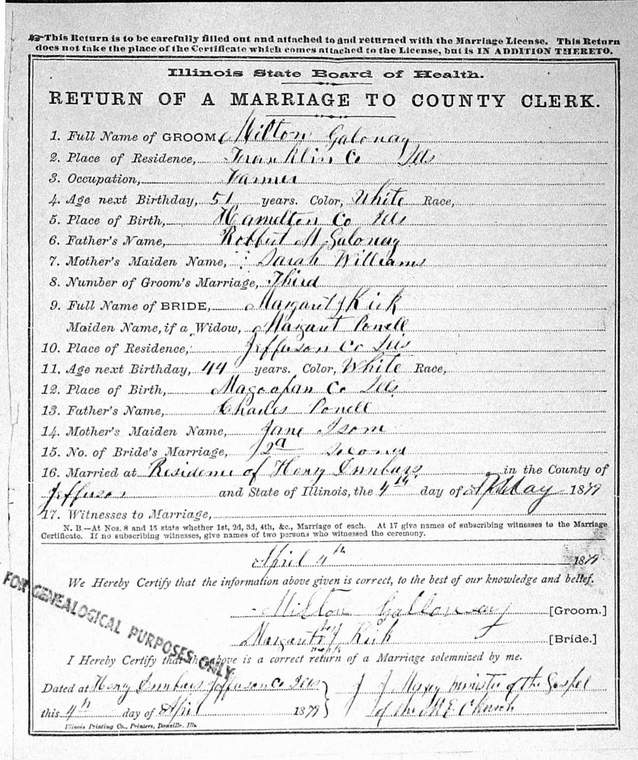 This Return is to be carefully filled out and attached to and returned with the Marriage License. This Return
does not take the place of the Certificate which comes attached to the License, but is IN ADDITION THERETO.
Illinois State Board of Health.
RETURN OF A MARRIAGE TO COUNTY CLERK.
1. Full Name of GROOM, Milton Galonay
2. Place of Residence, Franklin Co Ills
3. Occupation, Farmer
4. Age next Birthday, 51 years. Color, White Race,
5. Place of Birth, Hamelton Co Ills
6. Father's Name, Robbert M Galonay
7. Mother's Maiden Name, Sarah Williams
8. Number of Groom's Marriage, Third
9. Full Name of BRIDE, Margarit J Kirk
Maiden Name, if a Widow, Margarit Ponell
10. Place of Residence, Jefferson Co Ills
11. Age next Birthday, 44 years. Color, White Race,
12. Place of Birth, Magoapan Co Ills
13. Father's Name, Charles Ponell
14. Mother's Maiden Name, Jane Isom
15. No. of Bride's Marriage, 2d Second
16. Married at Residence of Henry Dunbars in the County of
Jefferson and State of Illinois, the 4th day of May 1879
17. Witnesses to Marriage,
N. B.—At Nos. 8 and 15 state whether 1st, 2d, 3d, 4th, &c., Marriage of each. At 17 give names of subscribing witnesses to the Marriage
Certificate. If no subscribing witnesses, give names of two persons who witnessed the ceremony.
April 4th 1879
We Hereby Certify that the information above given is correct, to the best of our knowledge and belief.
Milton Gallonay [Groom.]
Margarit J Kirk [Bride.]
FOR GENEALOGICAL PURPOSES ONLY
I Hereby Certify that the above is a correct return of a Marriage solemnized by me.
Dated at Henry Dunbars Jefferson Co Ills J J minister of the Gospel
this 4th day of April 1879 of the M.E. Church
Illinois Printing Co., Printers, Danville, Ills.